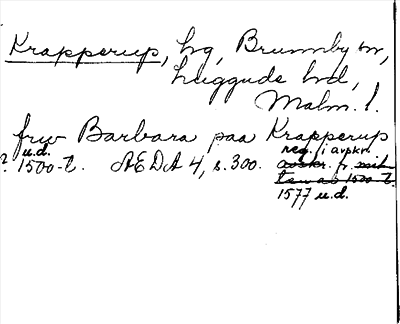 Krapperup, hg, Brunnby sn,
Luggude hd,
Malm. l.
fru Barbara paa Krapperup
? u.d. 1500-t. AEDA 4, s. 300. reg. i avskr.
avskr. fr. mit
ten av 1500-t.
1577 u.d.